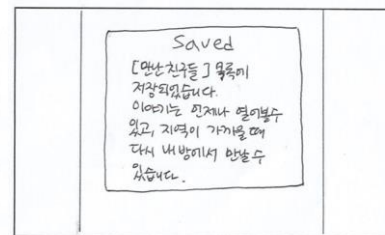 Saved
[만난 친구들] 목록에
저장되었습니다.
이야기는 언제나 열어볼수
있고, 지역이 가까울 때
다시 내 방에서 만날 수
있습니다.